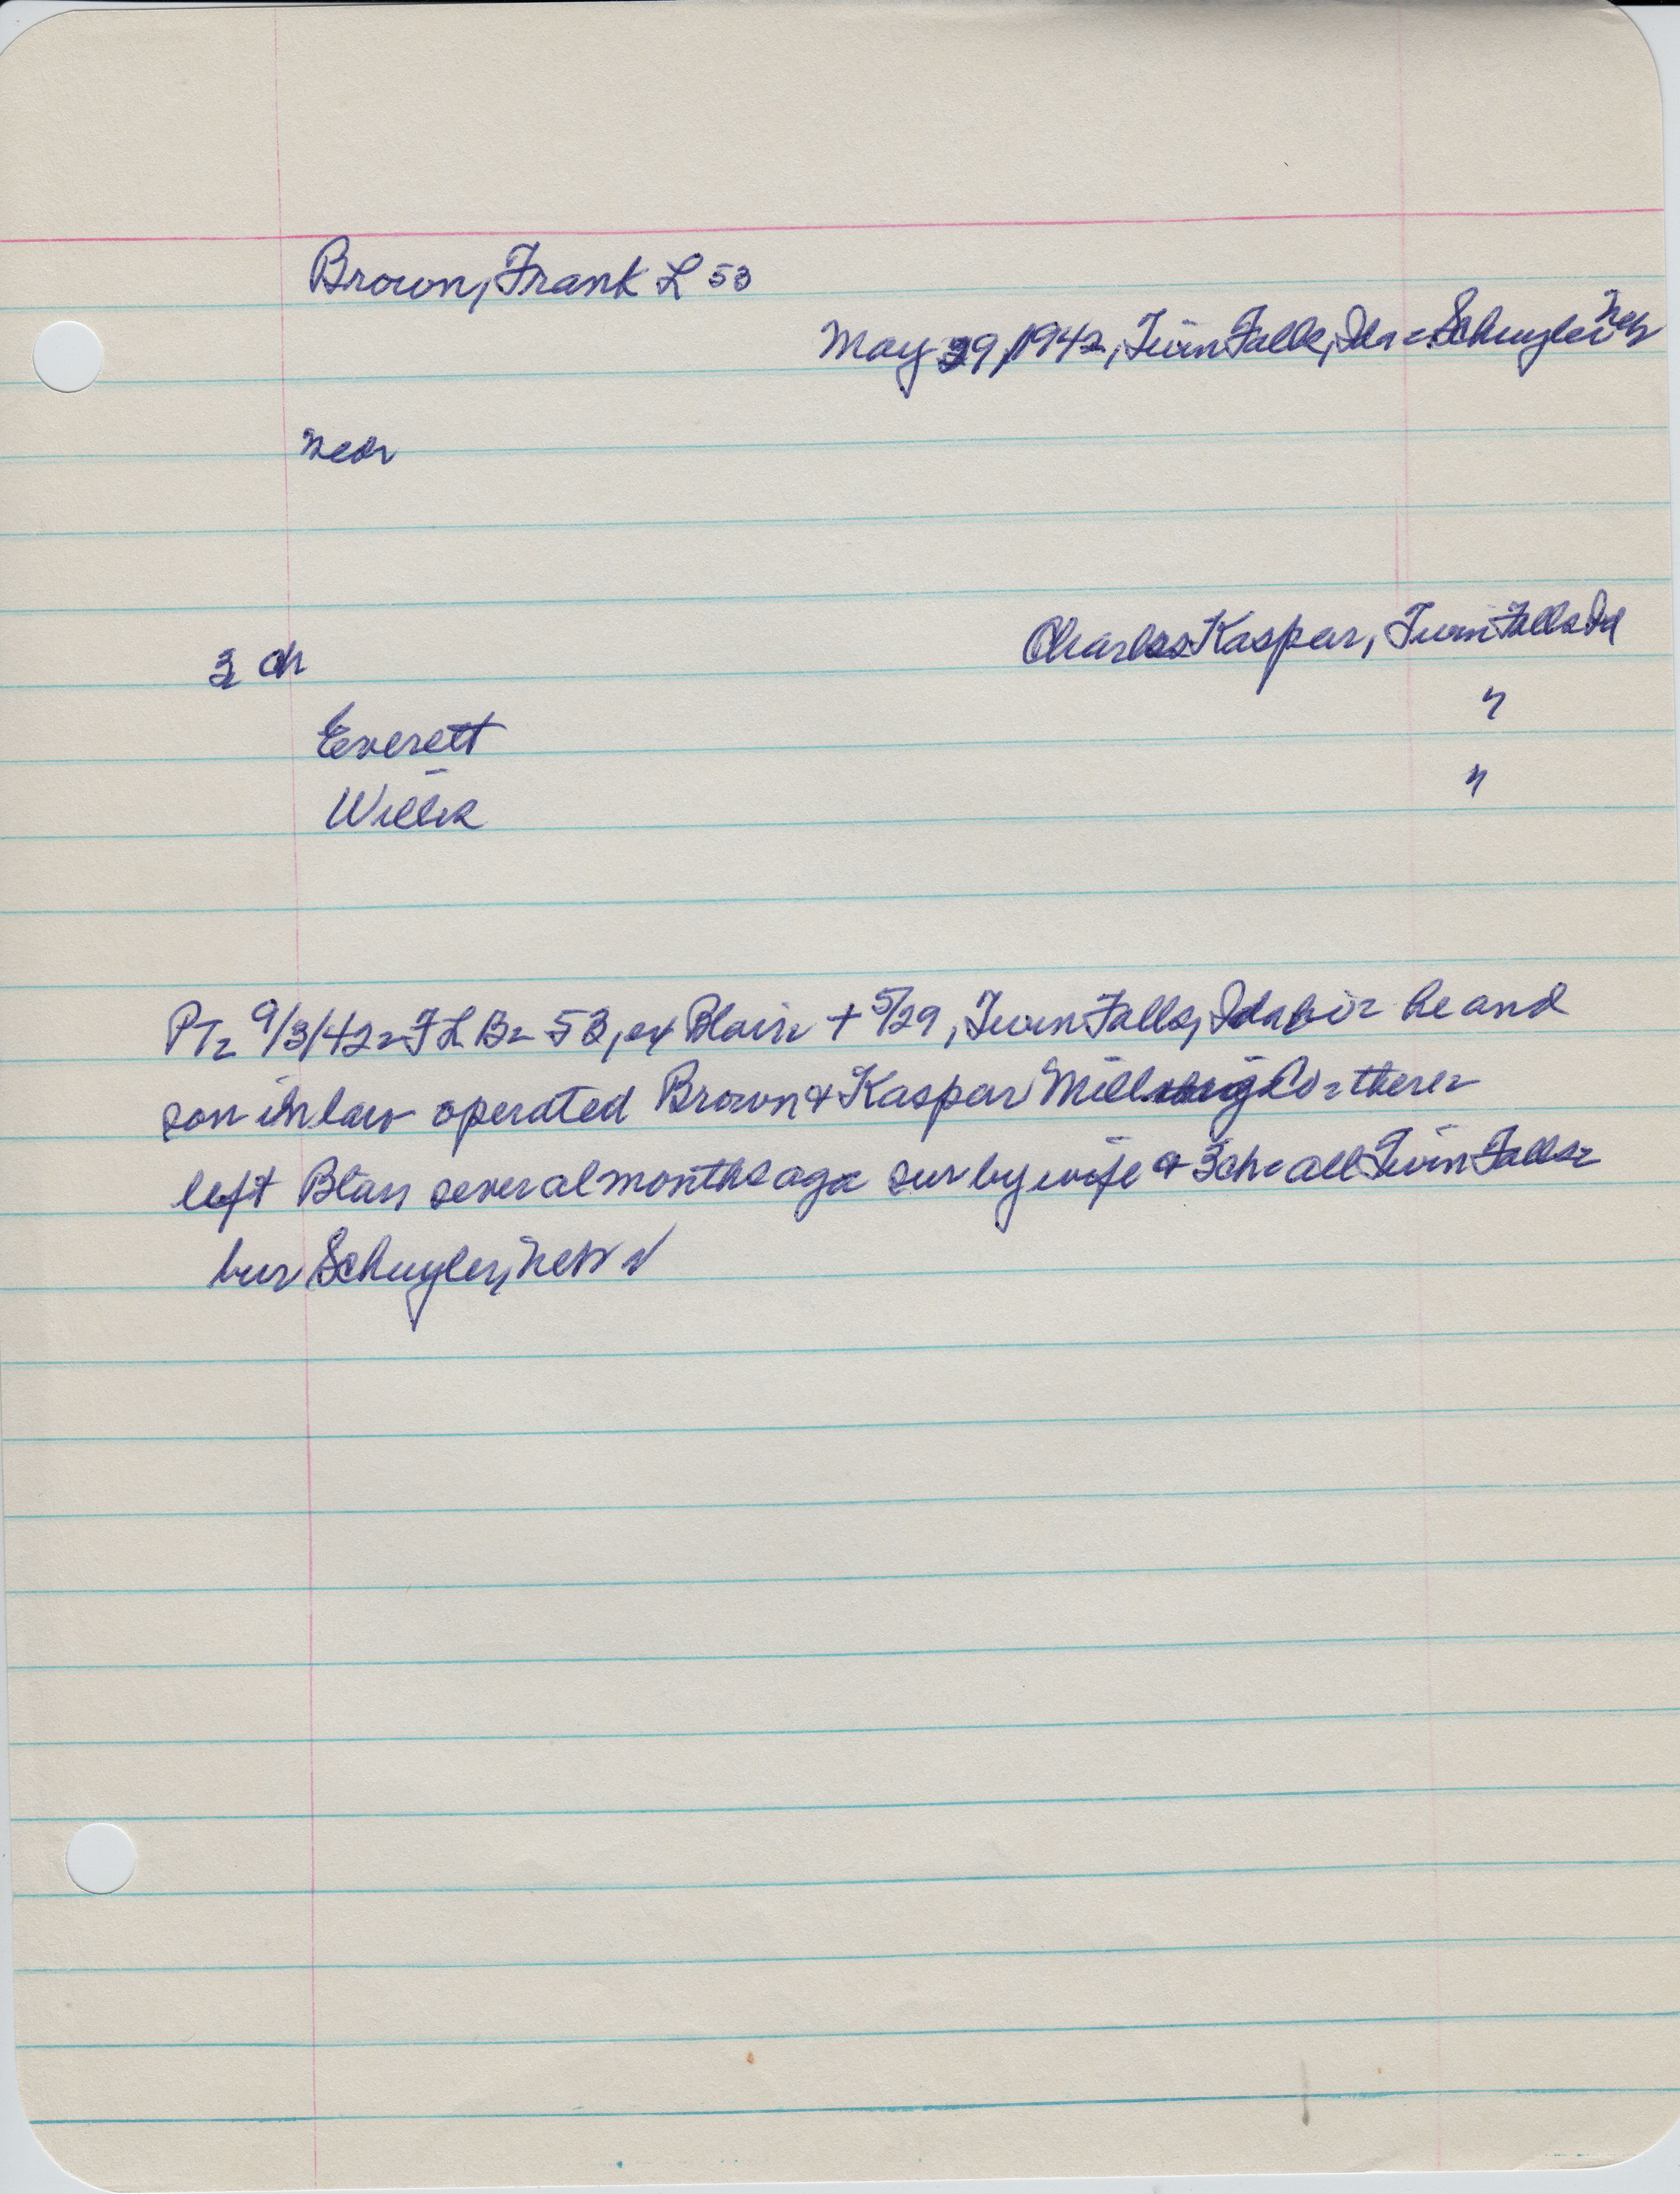 Brown, Frank L 53
May 29, 1942, Twin Falls, Ida = Schuyler Neb
Nebr
3 ch
Charles Kaspar, Twin Falls Id
"
Everett
"
Willis
PT= 9/3/42= F L B= 53, ex Blair + 5/29, Twin Falls, Ida = he and
son in law operated Brown & Kaspar Milling Co = there=
left Blair several months ago sur by wife & 3 ch = all Twin Falls=
bur Schuyler, Nebr